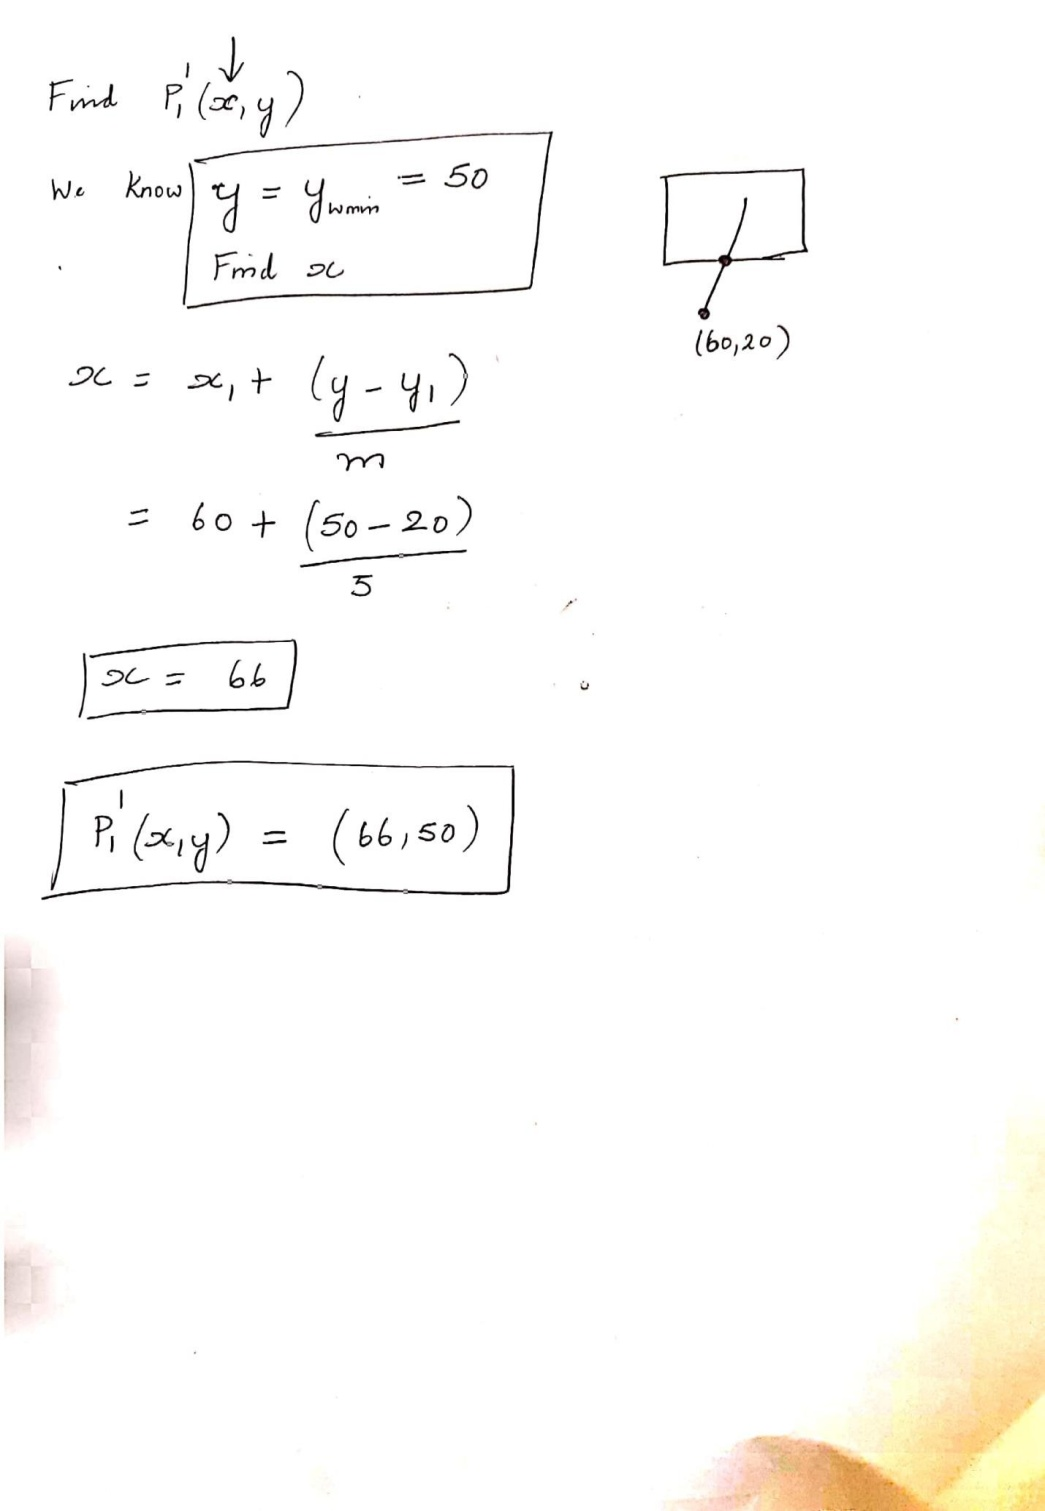 Find P₁'(x, y)
We Know y = ywmin = 50
Find x
(60,20)
x = x₁ + (y - y₁)
m
= 60 + (50 - 20)
5
x = 66
P₁'(x,y) = (66,50)